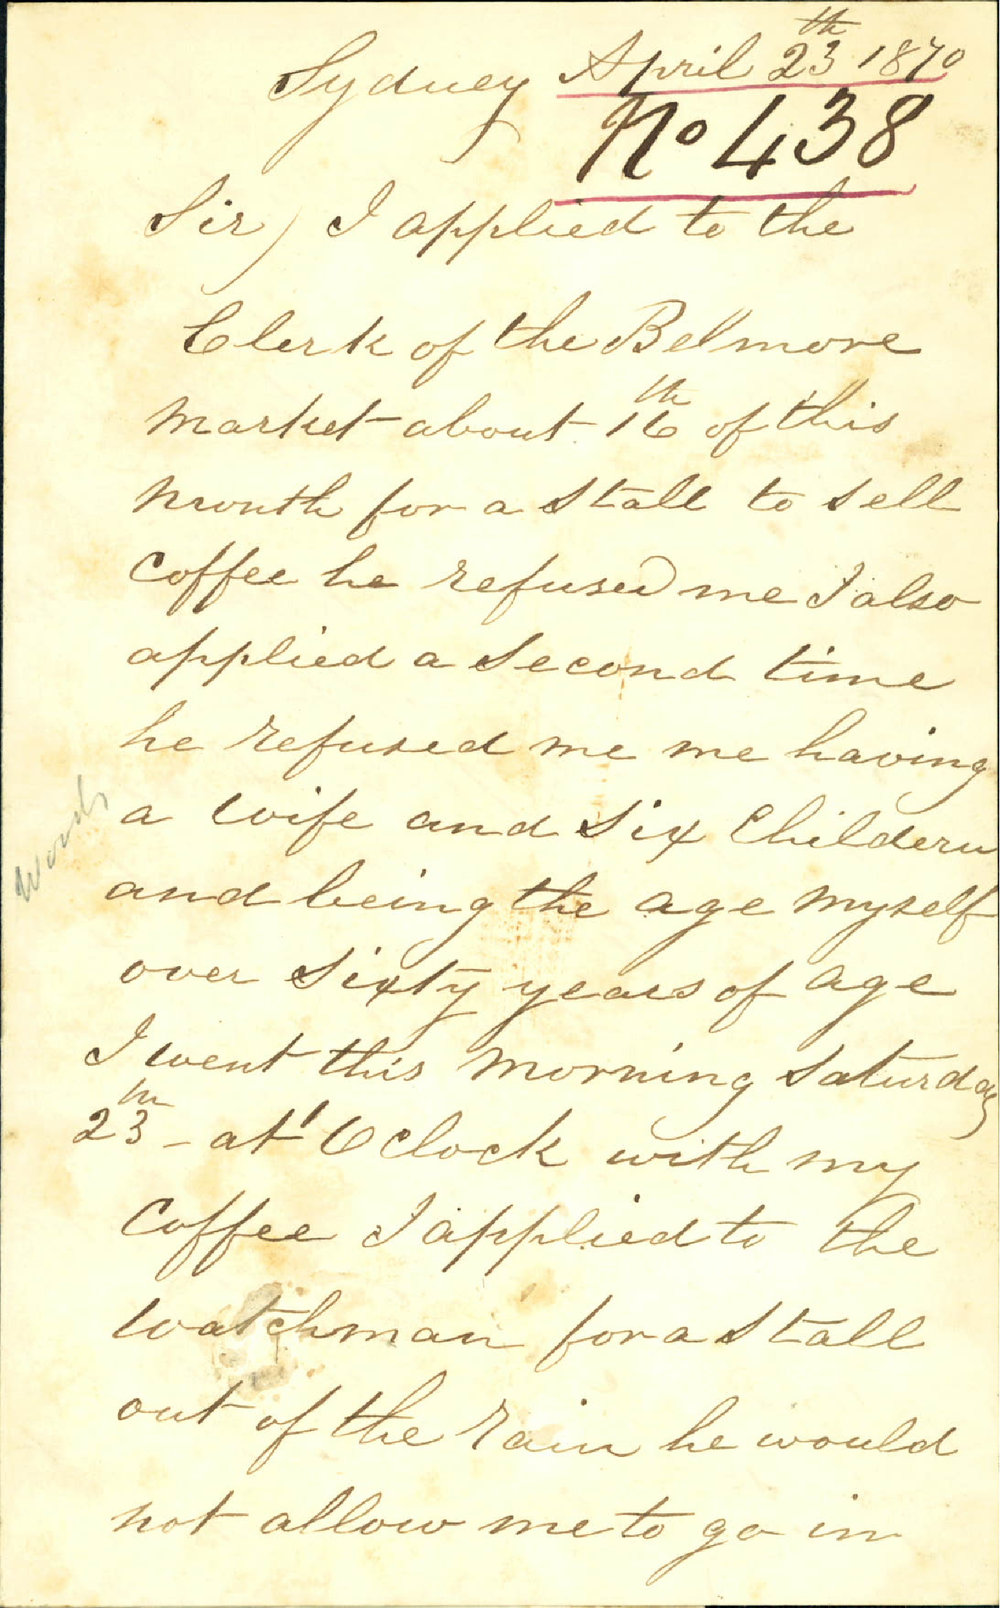 Sydney April 23th 1870
No 438
Sir) I applied to the
Clerk of the Belmore
Market about 16th of this
Month for a Stall to Sell
Coffee he refused me I also
applied a Second time
he refused me me having
a wife and Six Childern
Woods
and being the age Myself
over Sixty years of age
I went this Morning Saturday
23th - at 1 OClock with my
Coffee I applied to the
watchman for a Stall
out of the Rain he would
not allow me to go in